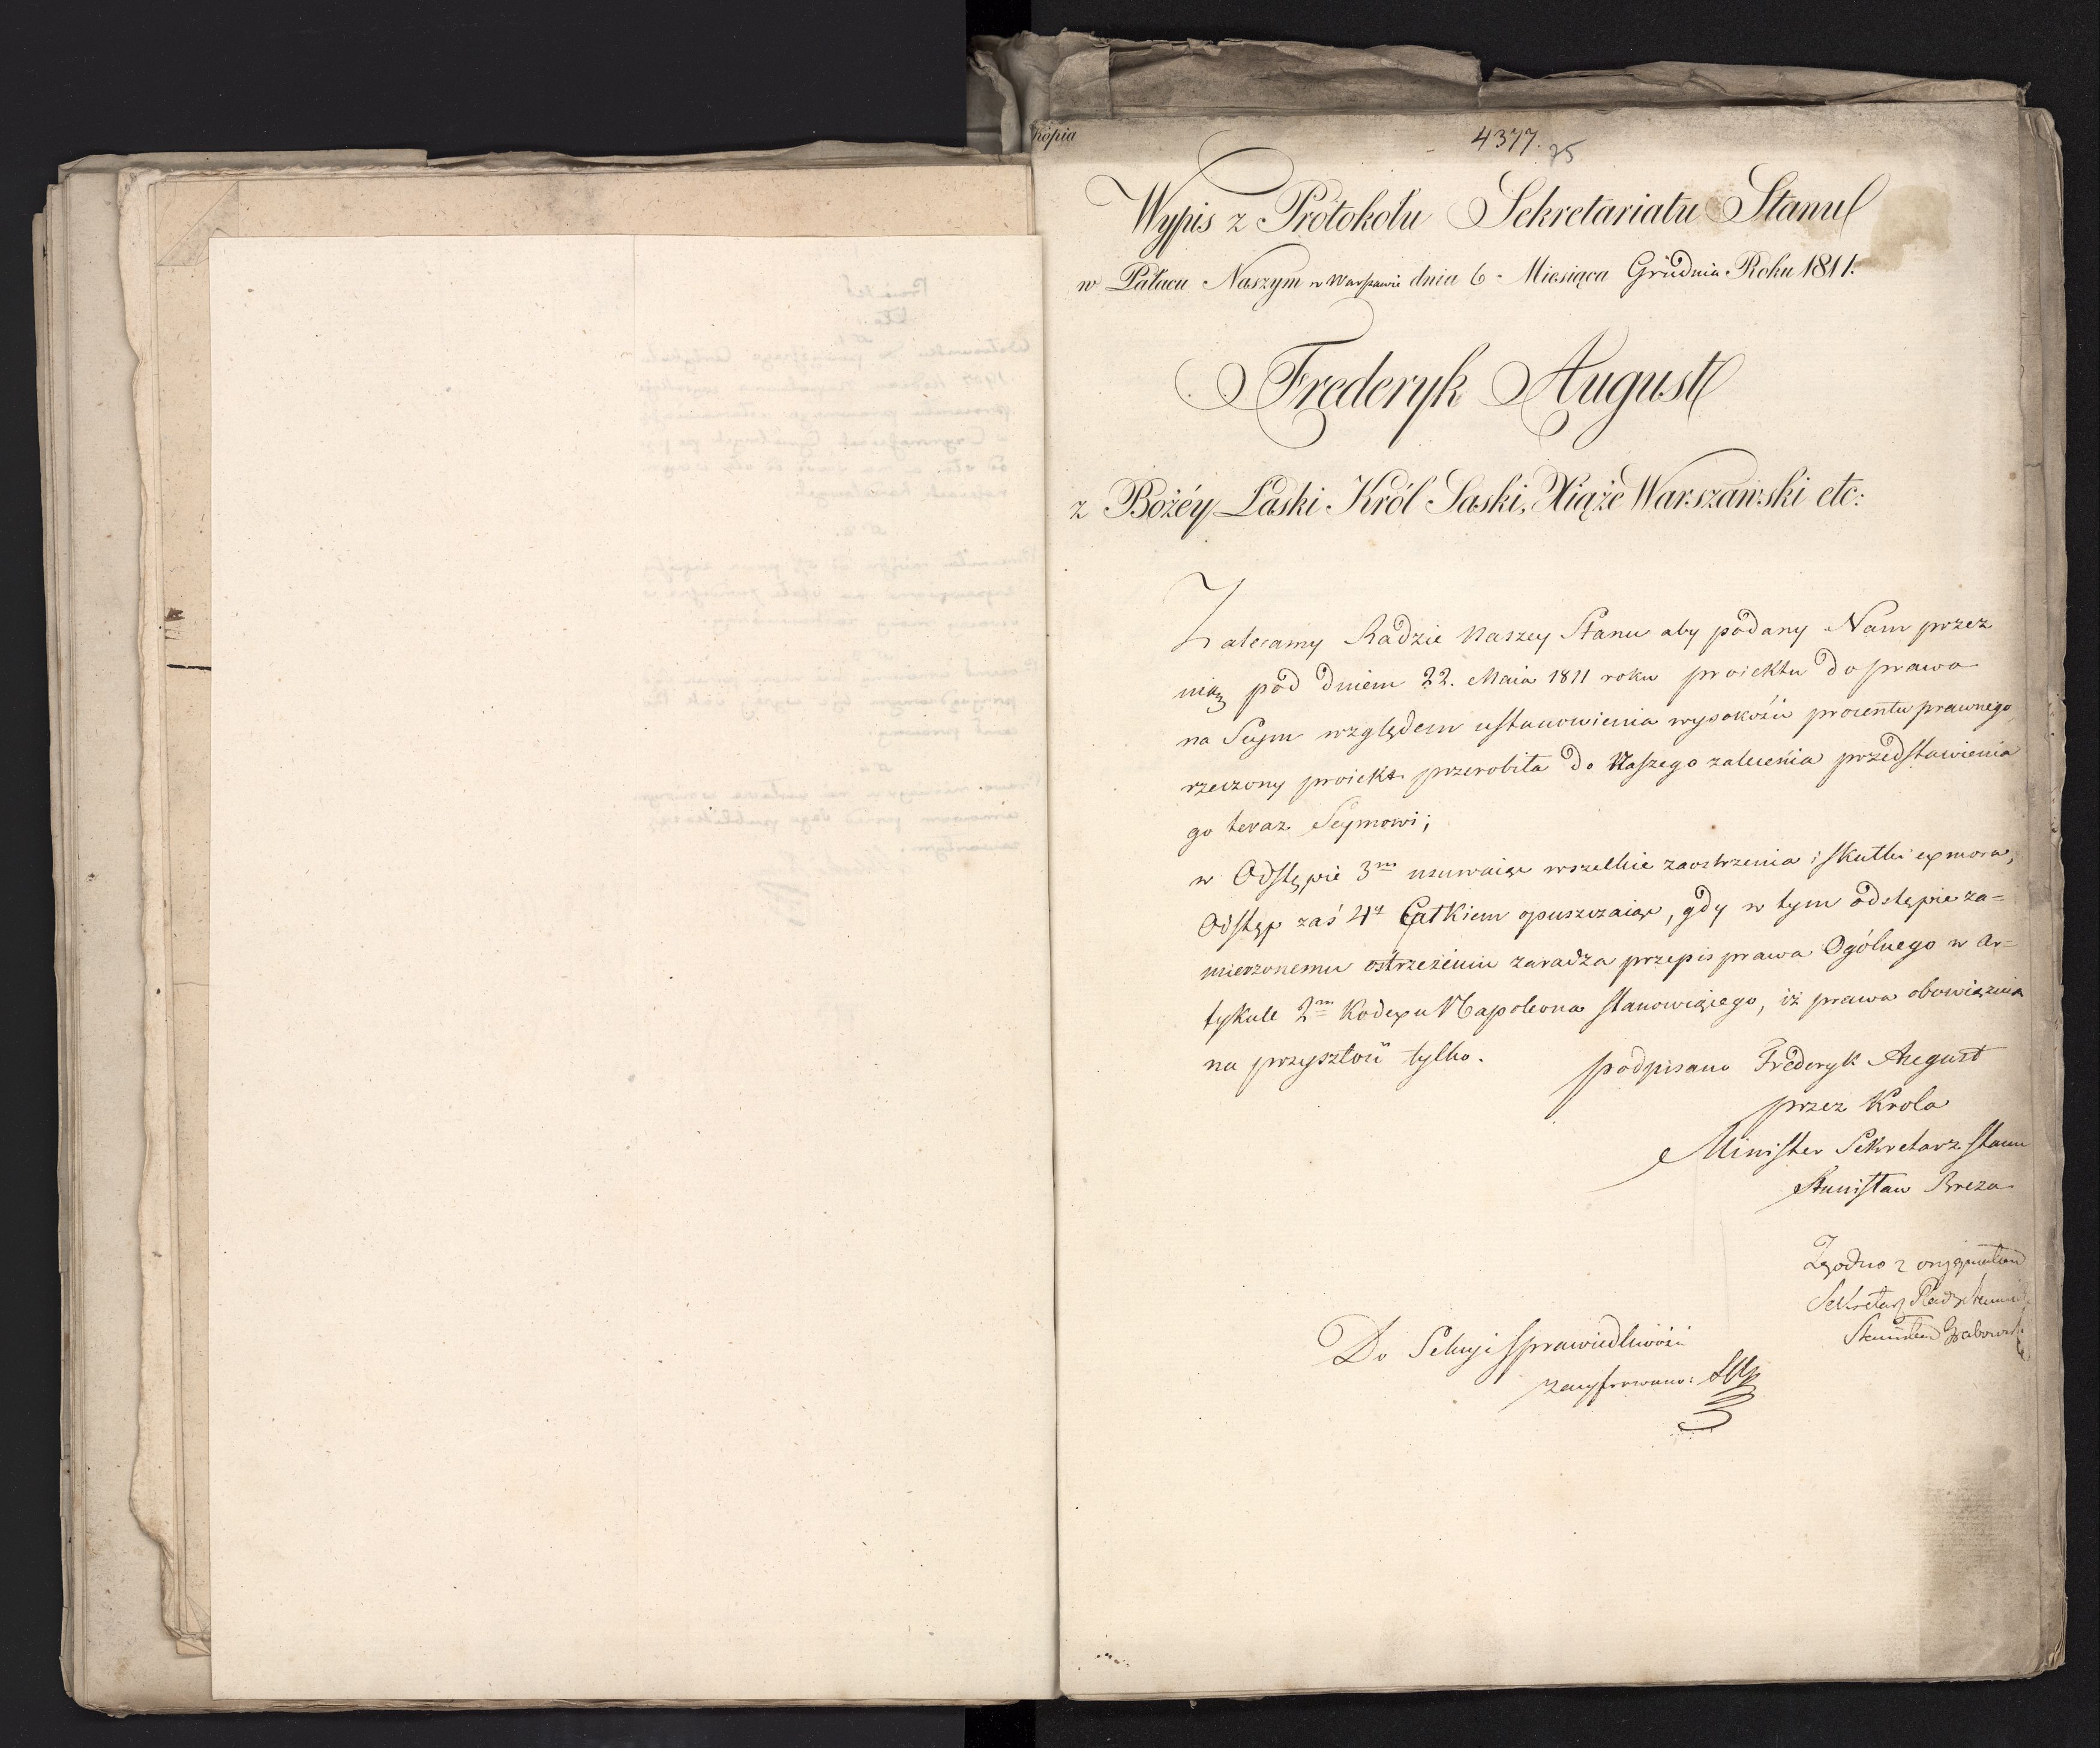 Kopia
4377. 75
Wypis z Protokołu Sekretariatu Stanu
w Pałacu Naszym w Warszawie dnia 6 Miesiąca Grudnia Roku 1811.
Frederyk August
z Bożéy Łaski Król Saski, Xiąże Warszawski etc:
Zalecamy Radzie Naszey Stanu aby podany Nam przez
nią pod dniem 22. Maia 1811 roku proiektu do prawa
na Seym względem ustanowienia wysokości procentu prawnego
rzeczony proiekt przerobiła do Naszego zalecenia przedstawienia
go teraz Seymowi;
w Odstępie 3m usuwaiąc wszelkie zaostrzenia i skutki ex mora,
Odstęp zaś 4ty Całkiem opuszczaiąc, gdy w tym odstępie za=
mierzonemu ostrzeżeniu zaradza przepis prawa Ogólnego w Ar=
tykule 2m Kodexu Napoleona stanowiącego, iż prawa obowiązuią
na przyszłość tylko.
podpisano Frederyk August
przez Krola
Minister Sekretarz Stanu
Stanisław Breza
Zgodno z oryginałem
Sekretarz Rady Stanu
Stanisław Grabowski
Do Sekcyi Sprawiedliwości
zacyfrowano: